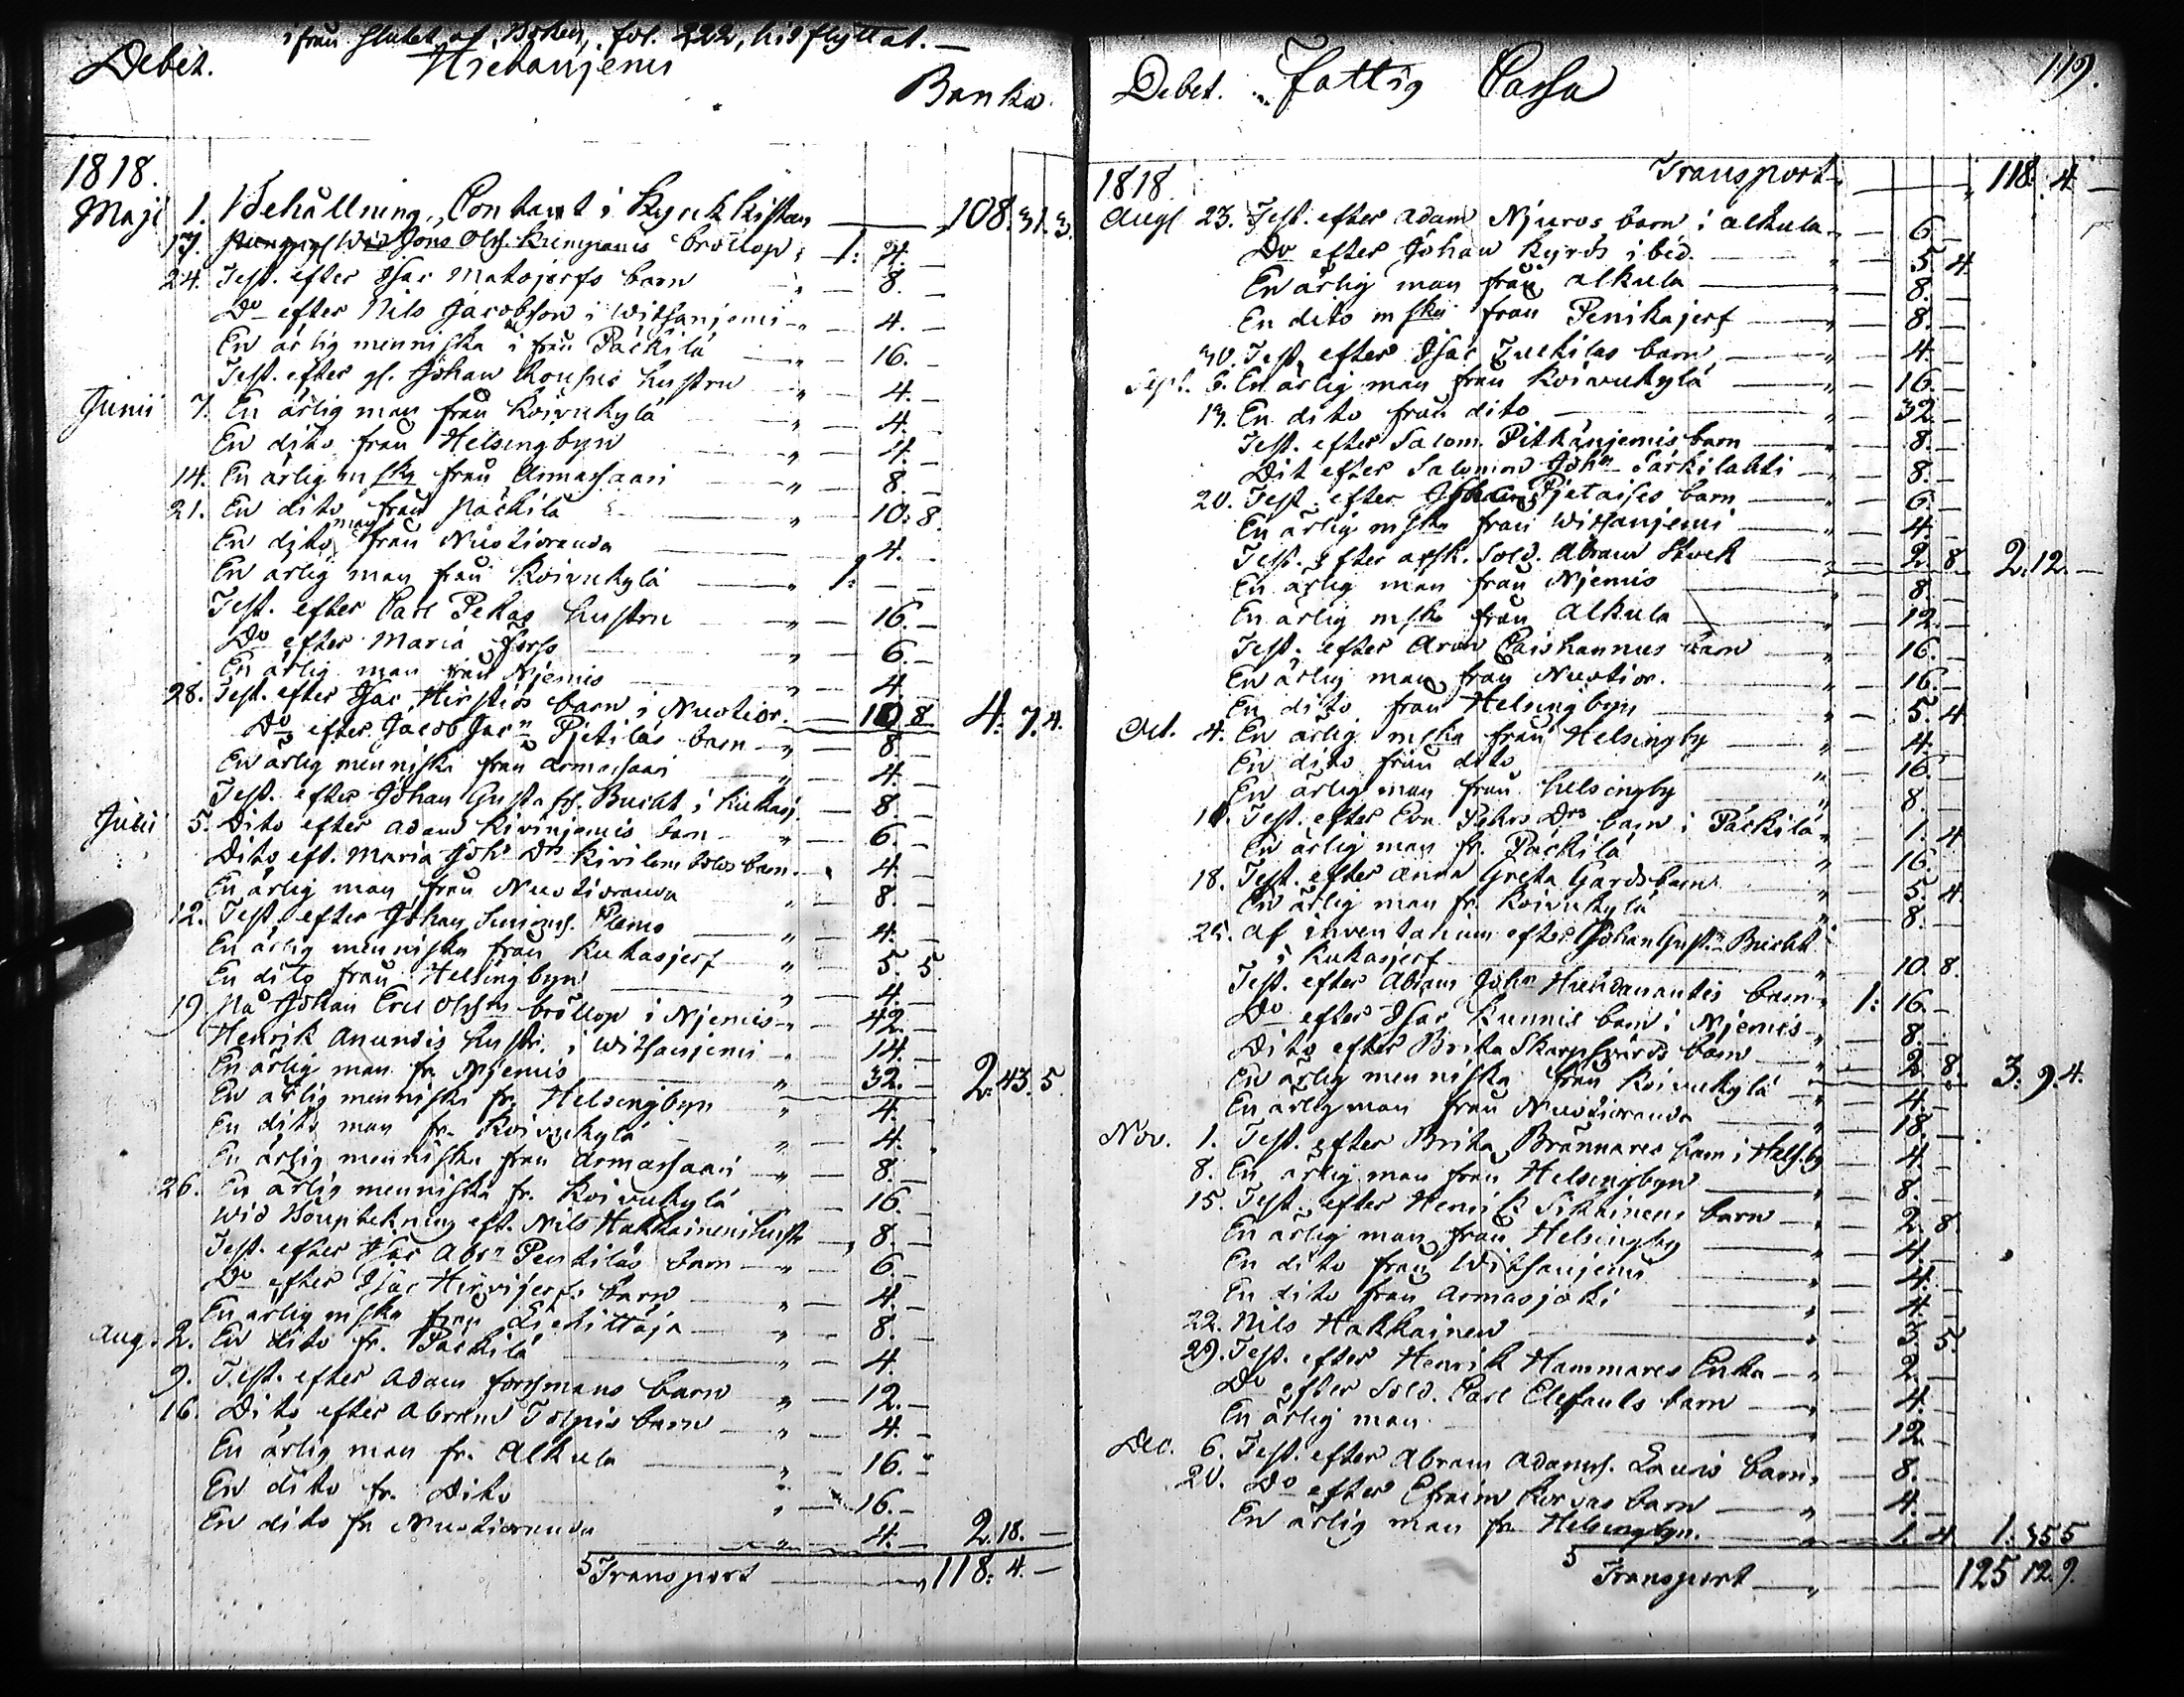 ifrån slutet af Boken, fol. 222, hitflyttat.
Debet. Hietaniemi
Banko.
1818.
Maji 1. Behållning, Contant i Kyrckkistan 108. 31. 3.
17. Wid Jöns Ols. Kumpanis bröllop 1: 4.
24. Test. efter Isac Matojerfs barn 8.
Do efter Nils Jacobson i Witsanjemi 4.
En ärlig menniska ifrån Päckilä 16.
Test. efter gl. Johan Rousus hustru 4.
Junii 7. En ärlig man från Koivukylä 4.
En dito från Helsingbyn 4.
14. En ärlig mska från Armassaari 8.
21. En dito från Päckilä 10: 8.
En dito man från Nuotioranda 4.
En ärlig man från Koivukylä 1:
Test. efter Carl Pekas hustru 16.
Do efter Maria Forss 6.
En ärlig man från Njemis 4.
28. Test. efter Isac Hirstiös barn i Nuotior. 10 8 4. 7. 4.
Do efter Jacob Jacn Pjetiläs barn 8.
En ärlig menniska från Armassaari 4.
Test. efter Johan Gustafs. Bucht i Kukasj. 8.
Julii 5. Dito efter Adam Kivinjemis barn 6.
Dito eft. Maria Johs Dr Kivilombolos barn 4.
En ärlig man från Nuotioranda 8.
12. Test. efter Johan Simons. Plemo 4.
En ärlig menniska från Kukasjerf 5. 5.
En dito från Helsingbyn 4.
19. På Johan Eric Olssns bröllop i Njemis 42.
Henrik Anundis hustr. i Witsanjemi 14.
En ärlig man fr. Njemis 32. 2. 43. 5.
En ärlig menniska fr. Helsingbyn 4.
En dito man fr. Koivukylä 4.
En ärlig menniska från Armassaari 8.
26. En ärlig menniska fr. Koivukylä 16.
Wid Bouptekning eft. Nils Hakkainens hust. 8.
Test. efter Isac Absn Pentiläs barn 6.
Do efter Isac Hirvijerfs barn 4.
En ärlig mska från Liehittäjä 8.
Aug. 2. En dito fr. Päckilä 4.
9. Test. efter Adam Forssmans barn 12.
16. Dito efter Abram Tolpis barn 4.
En ärlig man fr. Alkula 16.
En dito fr. Dito 16.
En dito fr Nuotioranda 4. 2. 18.
Transport 118: 4.
Debet. Fattig Cassa 119.
1818. Transport 118. 4
Augt 23. Test. efter Adam Njuros barn i Alkula 6
Do efter Johan Kyrös ibid. 5. 4.
En ärlig man från Alkula 8.
En dito mska från Penikajerf 8.
30. Test. efter Isac Juckilas barn 4.
Sept. 6. En ärlig man från Koivukylä 16.
13. En dito från dito 32
Test. efter Salom. Pitkänjemis barn 8.
Dit efter Salomon Johns Särkilahti 8.
20. Test. efter Johan Pjetaises barn 6.
En ärlig mska från Witsanjemi 4.
Test. efter afsk. Sold. Abram Stock 2. 8. 2. 12.
En ärlig man från Njemis 8.
En ärlig mska från Alkula 12.
Test. efter Aron Paishannus barn 16.
En ärlig man från Nuotior. 16.
En dito från Helsingbyn 5. 4
Oct. 4. En ärlig mska från Helsingby 4.
En dito från dito 16.
En ärlig man från Helsingby 8.
11. Test. efter Eva Pehrs Drs barn i Päckilä 1. 4
En ärlig man fr. Päckilä 16.
18. Test. efter Anna Greta Gards barn 5. 4.
En ärlig man fr. Koivukylä 8.
25. Af inventarium efter Johan Gust.n Bucht
i Kukasjerf 10. 8.
Test. efter Abram Johns Hiendanantis barn 1: 16.
Do efter Isac Kunnis barn i Njemis 8.
Dito efter Brita Skarpsvärds barn 2. 8.
En ärlig menniska från Koivukylä 4. 3. 9. 4.
En ärlig man från Nuotioranda 18.
Nov. 1. Test. efter Brita Brännares barn i Hels.by 4.
8. En ärlig man från Helsingbyn 8.
15. Test. efter Henrik Sikainens barn 2. 8.
En ärlig man från Helsingby 4.
En dito från Witsanjemi 4.
En dito från Armasjoki 4.
22. Nils Hakkainen 3. 5.
29. Test. efter Henrik Hammares Enka 2.
Do efter Sold. Carl Elefants barn 4.
En ärlig man 12
Dec. 6. Test. efter Abram Adams. Lauris barn 8.
20. Do efter Efraim Korvas barn 4.
En ärlig man fr Helsingbyn. 1. 4 1: 35 5
Transport 125 12. 9.